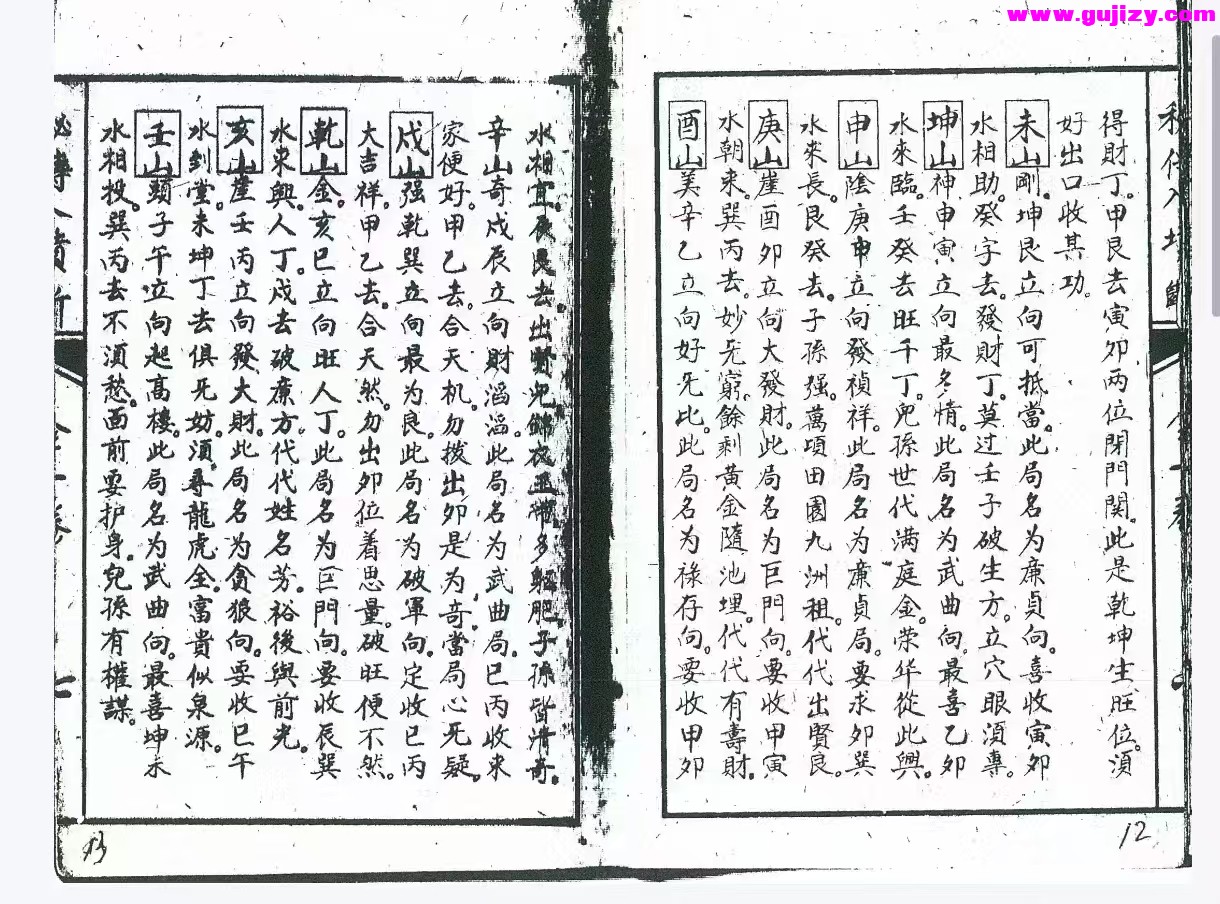 www.gujizy.com
得財丁。甲艮去寅卯两位閉門関。此是乾坤生旺位。須
好出口收其功。
未山剛。坤艮立向可抵當。此局名为廉貞向。喜收寅卯
水相助。癸字去。發財丁。莫过壬子破生方。立穴眼須專。
坤山神申寅立向最多情。此局名为武曲向。最喜乙卯
水來臨。壬癸去旺千丁。兒孫世代满庭金。荣华從此興。
申山陰庚申立向發禎祥。此局名为廉貞局。要求卯巽
水來長。艮癸去。子孫强。萬頃田園九洲租。代代出賢良。
庚山崖酉卯立向大發財。此局名为巨門向。要收甲寅
水朝来。巽丙去。妙无窮。餘剩黄金隨池埋。代代有壽財。
酉山美辛乙立向好无比。此局名为祿存向。要收甲卯
12
水相宜。艮去。出賢兒。玉带多躯肥子孫皆清奇。
辛山奇戌辰立向財滔滔。此局名为武曲局。巳丙收来
家便好。甲乙去。合天机。勿拨出卯是为奇。當局心无疑。
戍山强乾巽立向最为良。此局名为破軍向。定收巳丙
大吉祥。甲乙去。合天然。勿出卯位着思量。破旺便不然。
乾山金。亥巳立向旺人丁。此局名为巨門向。要收辰巽
水来興。人丁。戍去破廉方。代代姓名芳。裕後與前光。
亥山崖壬丙立向發大財。此局名为貪狼向。要收巳午
水到堂。未坤丁去俱无妨。須尋龍虎全。富貴似泉源。
壬山頭子午立向起高樓。此局名为武曲向。最喜坤未
水相投。巽丙去不須愁。面前要护身。兒孫有權謀。
七
13